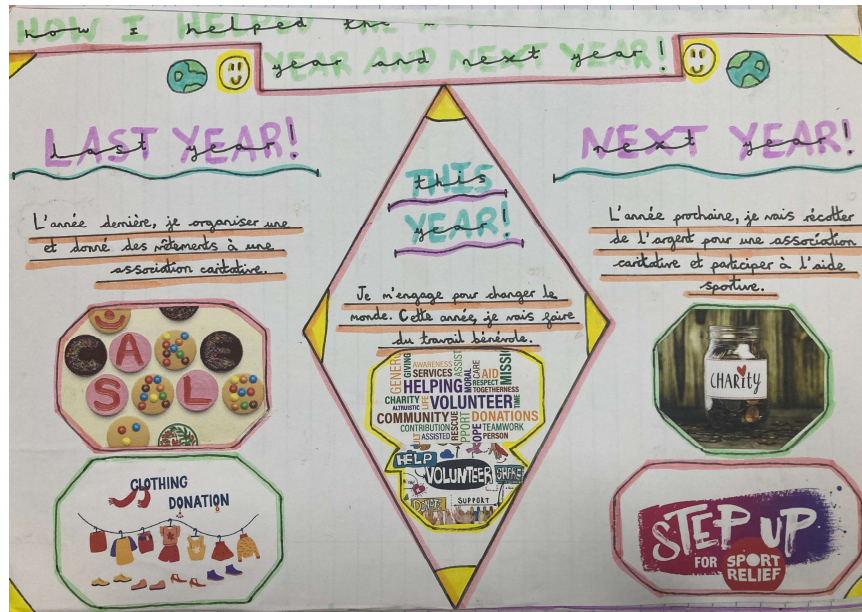 HOW I HELPED THE
how I helped the
YEAR AND NEXT YEAR!
year and next year!
LAST YEAR!
last year!
L'année dernière, je organiser une
et donné des vêtements à une
association caritative.
BAK
SAL
CLOTHING
DONATION
THIS
this
YEAR!
year!
Je m'engage pour changer le
monde. Cette année, je vais faire
du travail bénévole.
GIVING
AWARENESS
SERVICES
ASSIST
MORAL
CARE
AID
RESPECT
TOGETHERNESS
HELPING
CHARITY
ALTRUISTIC
LIFE
VOLUNTEER
TIME
COMMUNITY
RESCUE
DONATIONS
CONTRIBUTION
TEAMWORK
ASSISTED
PERSON
HELP
VOLUNTEER
SHARE
DONATE
SUPPORT
NEXT YEAR!
next year!
L'année prochaine, je vais récolter
de l'argent pour une association
caritative et participer à l'aide
sportive.
CHARITY
STEP UP
FOR SPORT
RELIEF